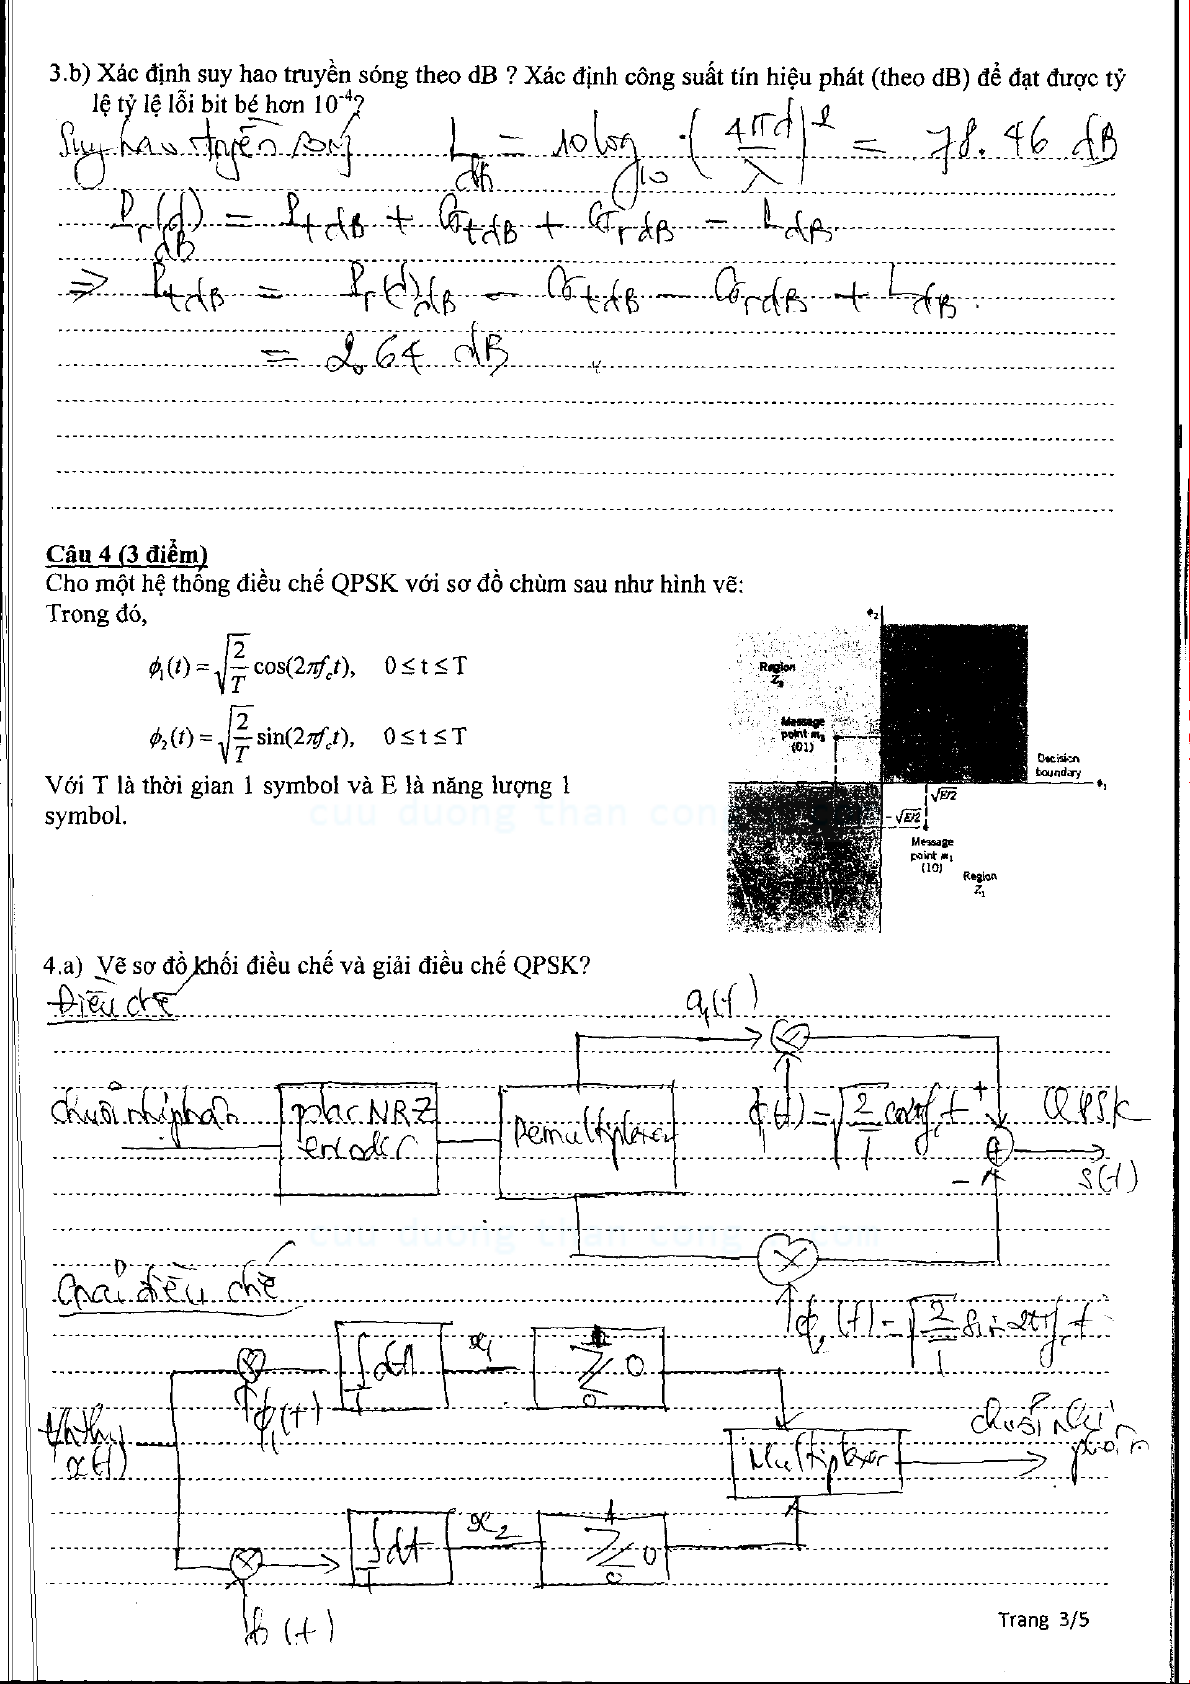 3.b) Xác định suy hao truyền sóng theo dB ? Xác định công suất tín hiệu phát (theo dB) để đạt được tỷ
lệ tỷ lệ lỗi bit bé hơn 10⁻⁴?
Suy hao truyền sóng L_dB = 10 log₁₀ (4πd/λ)² = 78.46 dB
P_r(d)_dB = P_t dB + G_t dB + G_r dB − L_dB
⇒ P_t dB = P_r(d)_dB − G_t dB − G_r dB + L_dB
= 2.64 dB
Câu 4 (3 điểm)
Cho một hệ thống điều chế QPSK với sơ đồ chùm sau như hình vẽ:
Trong đó,
ϕ₁(t) = √(2/T) cos(2πf_c t), 0 ≤ t ≤ T
ϕ₂(t) = √(2/T) sin(2πf_c t), 0 ≤ t ≤ T
Với T là thời gian 1 symbol và E là năng lượng 1
symbol.
cuu duong than cong
ϕ₂
Region
Z₃
Message
point m₃
(01)
Decision
boundary
ϕ₁
√E/2
−√E/2
Message
point m₁
(10)
Region
Z₁
4.a) Vẽ sơ đồ khối điều chế và giải điều chế QPSK?
Điều chế
a₁(t)
chuỗi nhị phân
polar NRZ
encoder
Demultiplexer
ϕ₁(t) = √(2/T) cos2πf_c t
+
−
QPSK
s(t)
cuu duong than cong . com
Giải điều chế
ϕ₂(t) = √(2/T) sin 2πf_c t
∫_T dt
x₁
1 ≷ 0 0
x(t)
ϕ₁(t)
Multiplexer
chuỗi nhị
phân
∫_T dt
x₂
1 ≷ 0 0
ϕ₂(t)
Trang 3/5